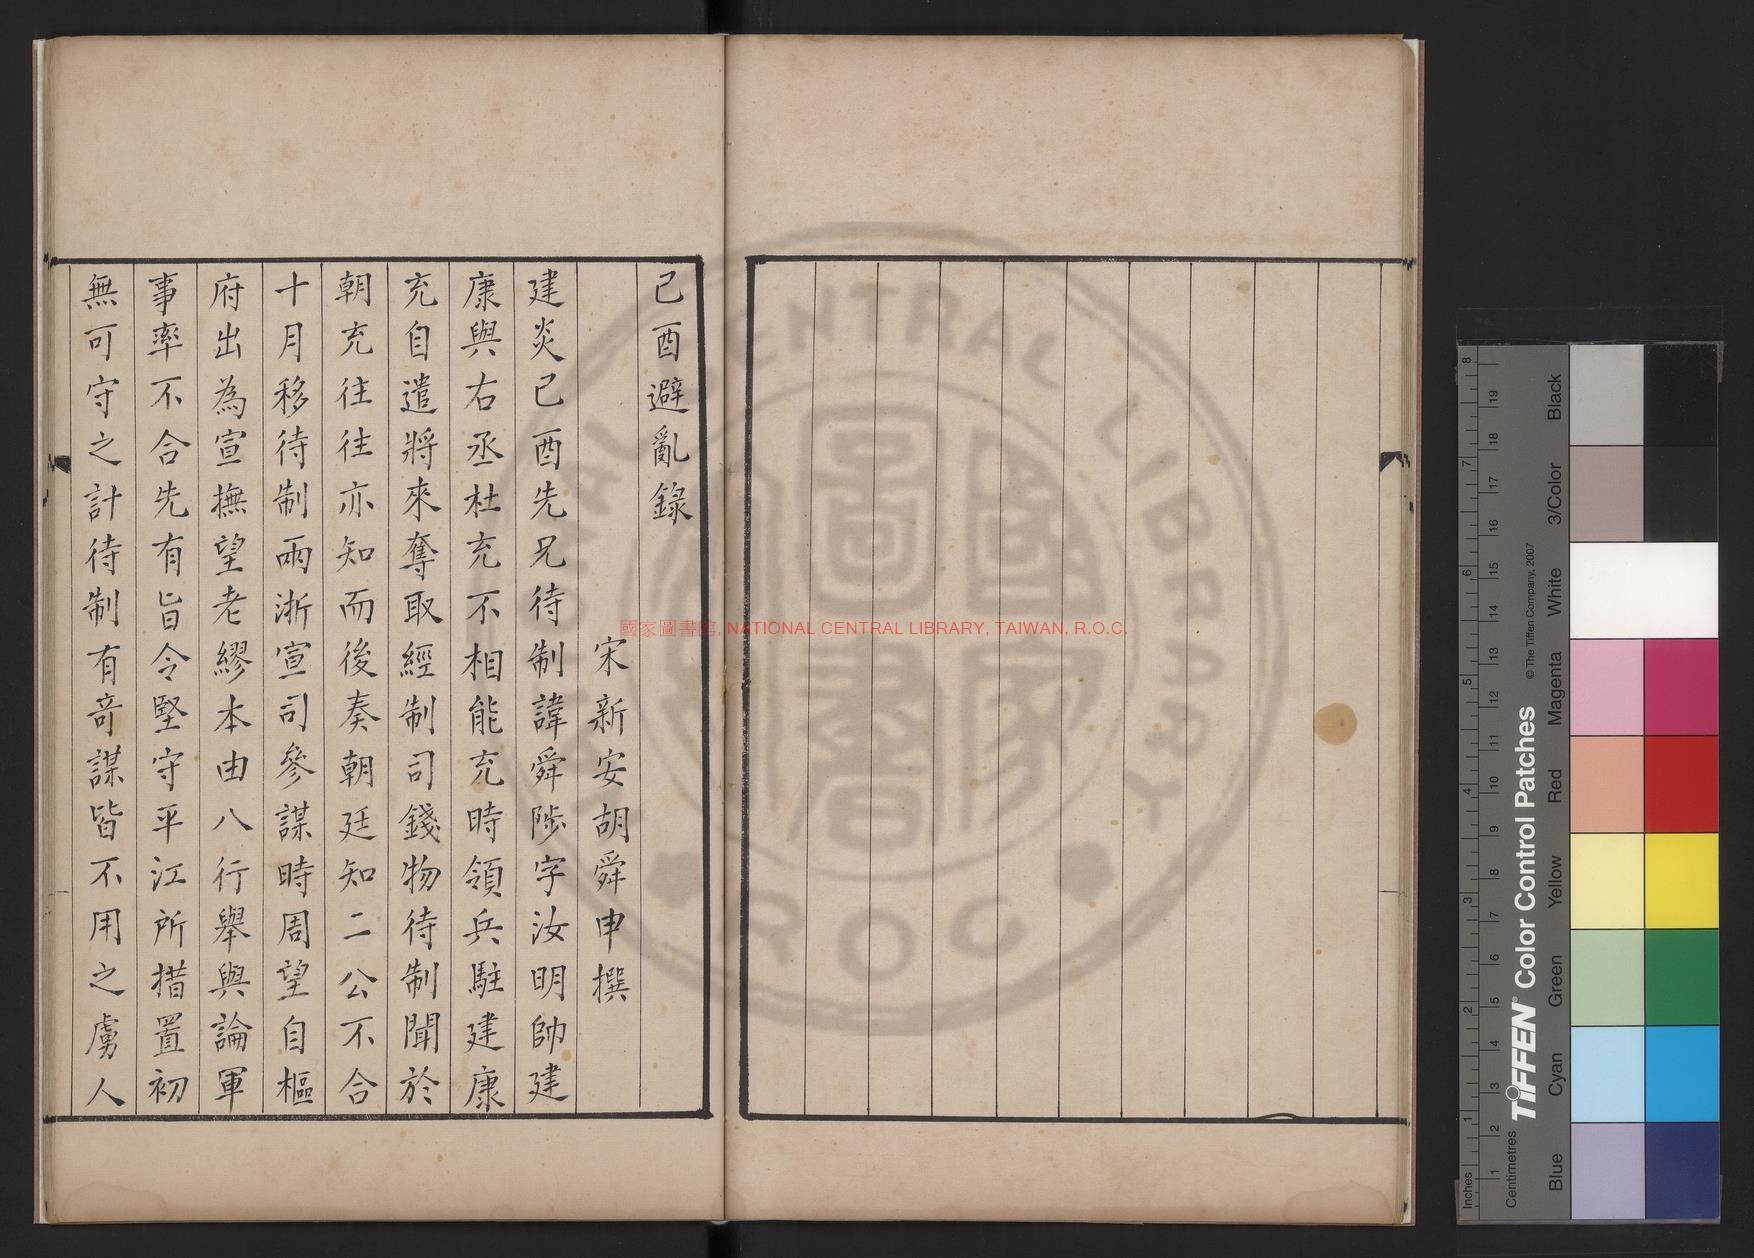 己酉避亂錄
宋新安胡舜申撰
建炎己酉先兄待制諱舜陟字汝明帥建
康與右丞杜充不相能充時領兵駐建康
充自遣將來奪取經制司錢物待制聞於
朝充往往亦知而後奏朝廷知二公不合
十月移待制兩浙宣司參謀時周望自樞
府出為宣撫望老繆本由八行舉與論軍
事率不合先有旨令堅守平江所措置初
無可守之計待制有奇謀皆不用之虜人
國家圖書館, NATIONAL CENTRAL LIBRARY, TAIWAN, R.O.C.
CENTRAL LIBRARY
ROC
TIFFEN® Color Control Patches
© The Tiffen Company, 2007
Inches
1 2 3 4 5 6 7 8
Centimetres
1 2 3 4 5 6 7 8 9 10 11 12 13 14 15 16 17 18 19
Blue
Cyan
Green
Yellow
Red
Magenta
White
3/Color
Black